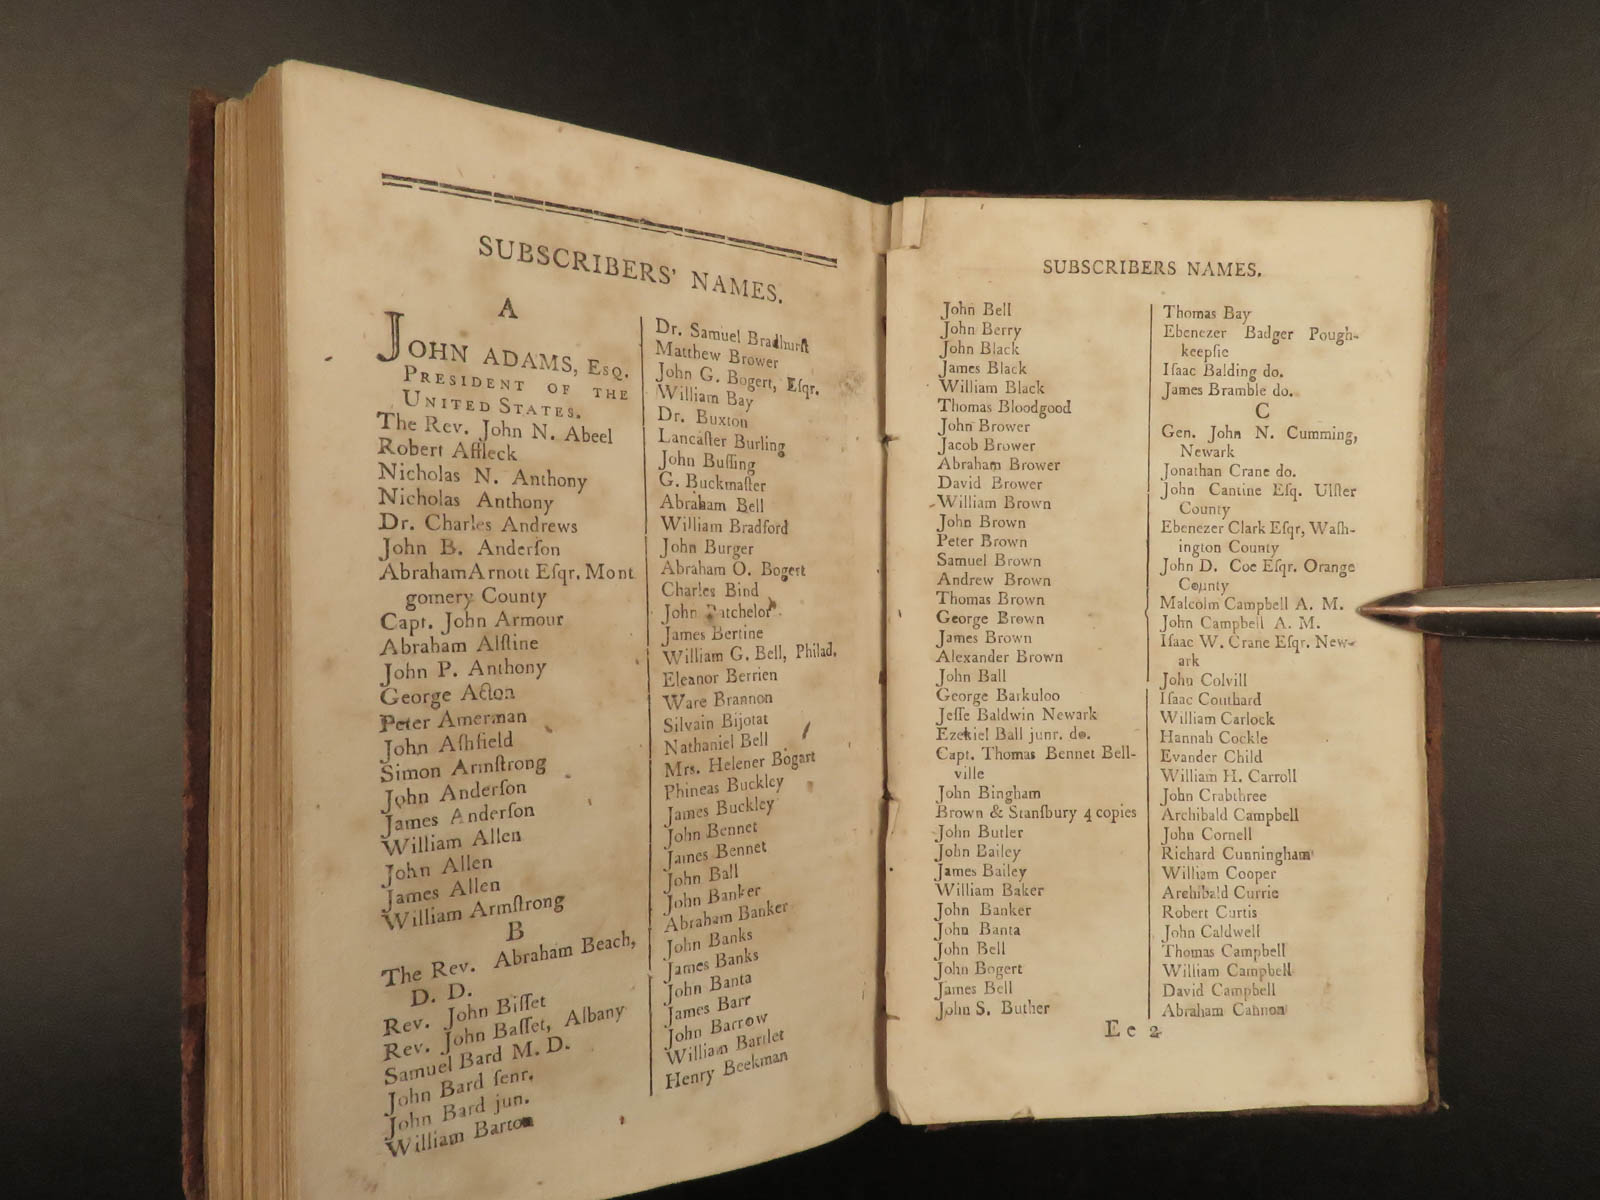 SUBSCRIBERS' NAMES.
A
JOHN ADAMS, ESQ.
PRESIDENT OF THE
UNITED STATES.
The Rev. John N. Abeel
Robert Affleck
Nicholas N. Anthony
Nicholas Anthony
Dr. Charles Andrews
John B. Anderſon
Abraham Arnott Eſqr. Mont
gomery County
Capt. John Armour
Abraham Alſtine
John P. Anthony
George Acton
Peter Amerman
John Aſhfield
Simon Armſtrong
John Anderſon
James Anderſon
William Allen
John Allen
James Allen
William Armſtrong
B
The Rev. Abraham Beach,
D. D.
Rev. John Biſſet
Rev. John Baſſet, Albany
Samuel Bard M. D.
John Bard ſenr.
John Bard jun.
William Barton
Dr. Samuel Bradhurſt
Matthew Brower
John G. Bogert, Eſqr.
William Bay
Dr. Buxton
Lancaſter Burling
John Buſſing
G. Buckmaſter
Abraham Bell
William Bradford
John Burger
Abraham O. Bogert
Charles Bind
John Batchelor
James Bertine
William G. Bell, Philad.
Eleanor Berrien
Ware Brannon
Silvain Bijotat
Nathaniel Bell
Mrs. Helener Bogart
Phineas Buckley
James Buckley
John Bennet
James Bennet
John Ball
John Banker
Abraham Banker
John Banks
James Banks
John Banta
James Barr
John Barrow
William Bartlet
Henry Beekman
SUBSCRIBERS NAMES.
John Bell
John Berry
John Black
James Black
William Black
Thomas Bloodgood
John Brower
Jacob Brower
Abraham Brower
David Brower
William Brown
John Brown
Peter Brown
Samuel Brown
Andrew Brown
Thomas Brown
George Brown
James Brown
Alexander Brown
John Ball
George Barkuloo
Jeſſe Baldwin Newark
Ezekiel Ball junr. do.
Capt. Thomas Bennet Bell-
ville
John Bingham
Brown & Stanſbury 4 copies
John Butler
John Bailey
James Bailey
William Baker
John Banker
John Banta
John Bell
John Bogert
James Bell
John S. Buther
Thomas Bay
Ebenezer Badger Pough-
keepſie
Iſaac Balding do.
James Bramble do.
C
Gen. John N. Cumming,
Newark
Jonathan Crane do.
John Cantine Eſq. Ulſter
County
Ebenezer Clark Eſqr, Waſh-
ington County
John D. Coe Eſqr. Orange
County
Malcolm Campbell A. M.
John Campbell A. M.
Iſaac W. Crane Eſqr. New-
ark
John Colvill
Iſaac Couthard
William Carlock
Hannah Cockle
Evander Child
William H. Carroll
John Crabthree
Archibald Campbell
John Cornell
Richard Cunningham
William Cooper
Archibald Currie
Robert Curtis
John Caldwell
Thomas Campbell
William Campbell
David Campbell
Abraham Cannon
E e 2